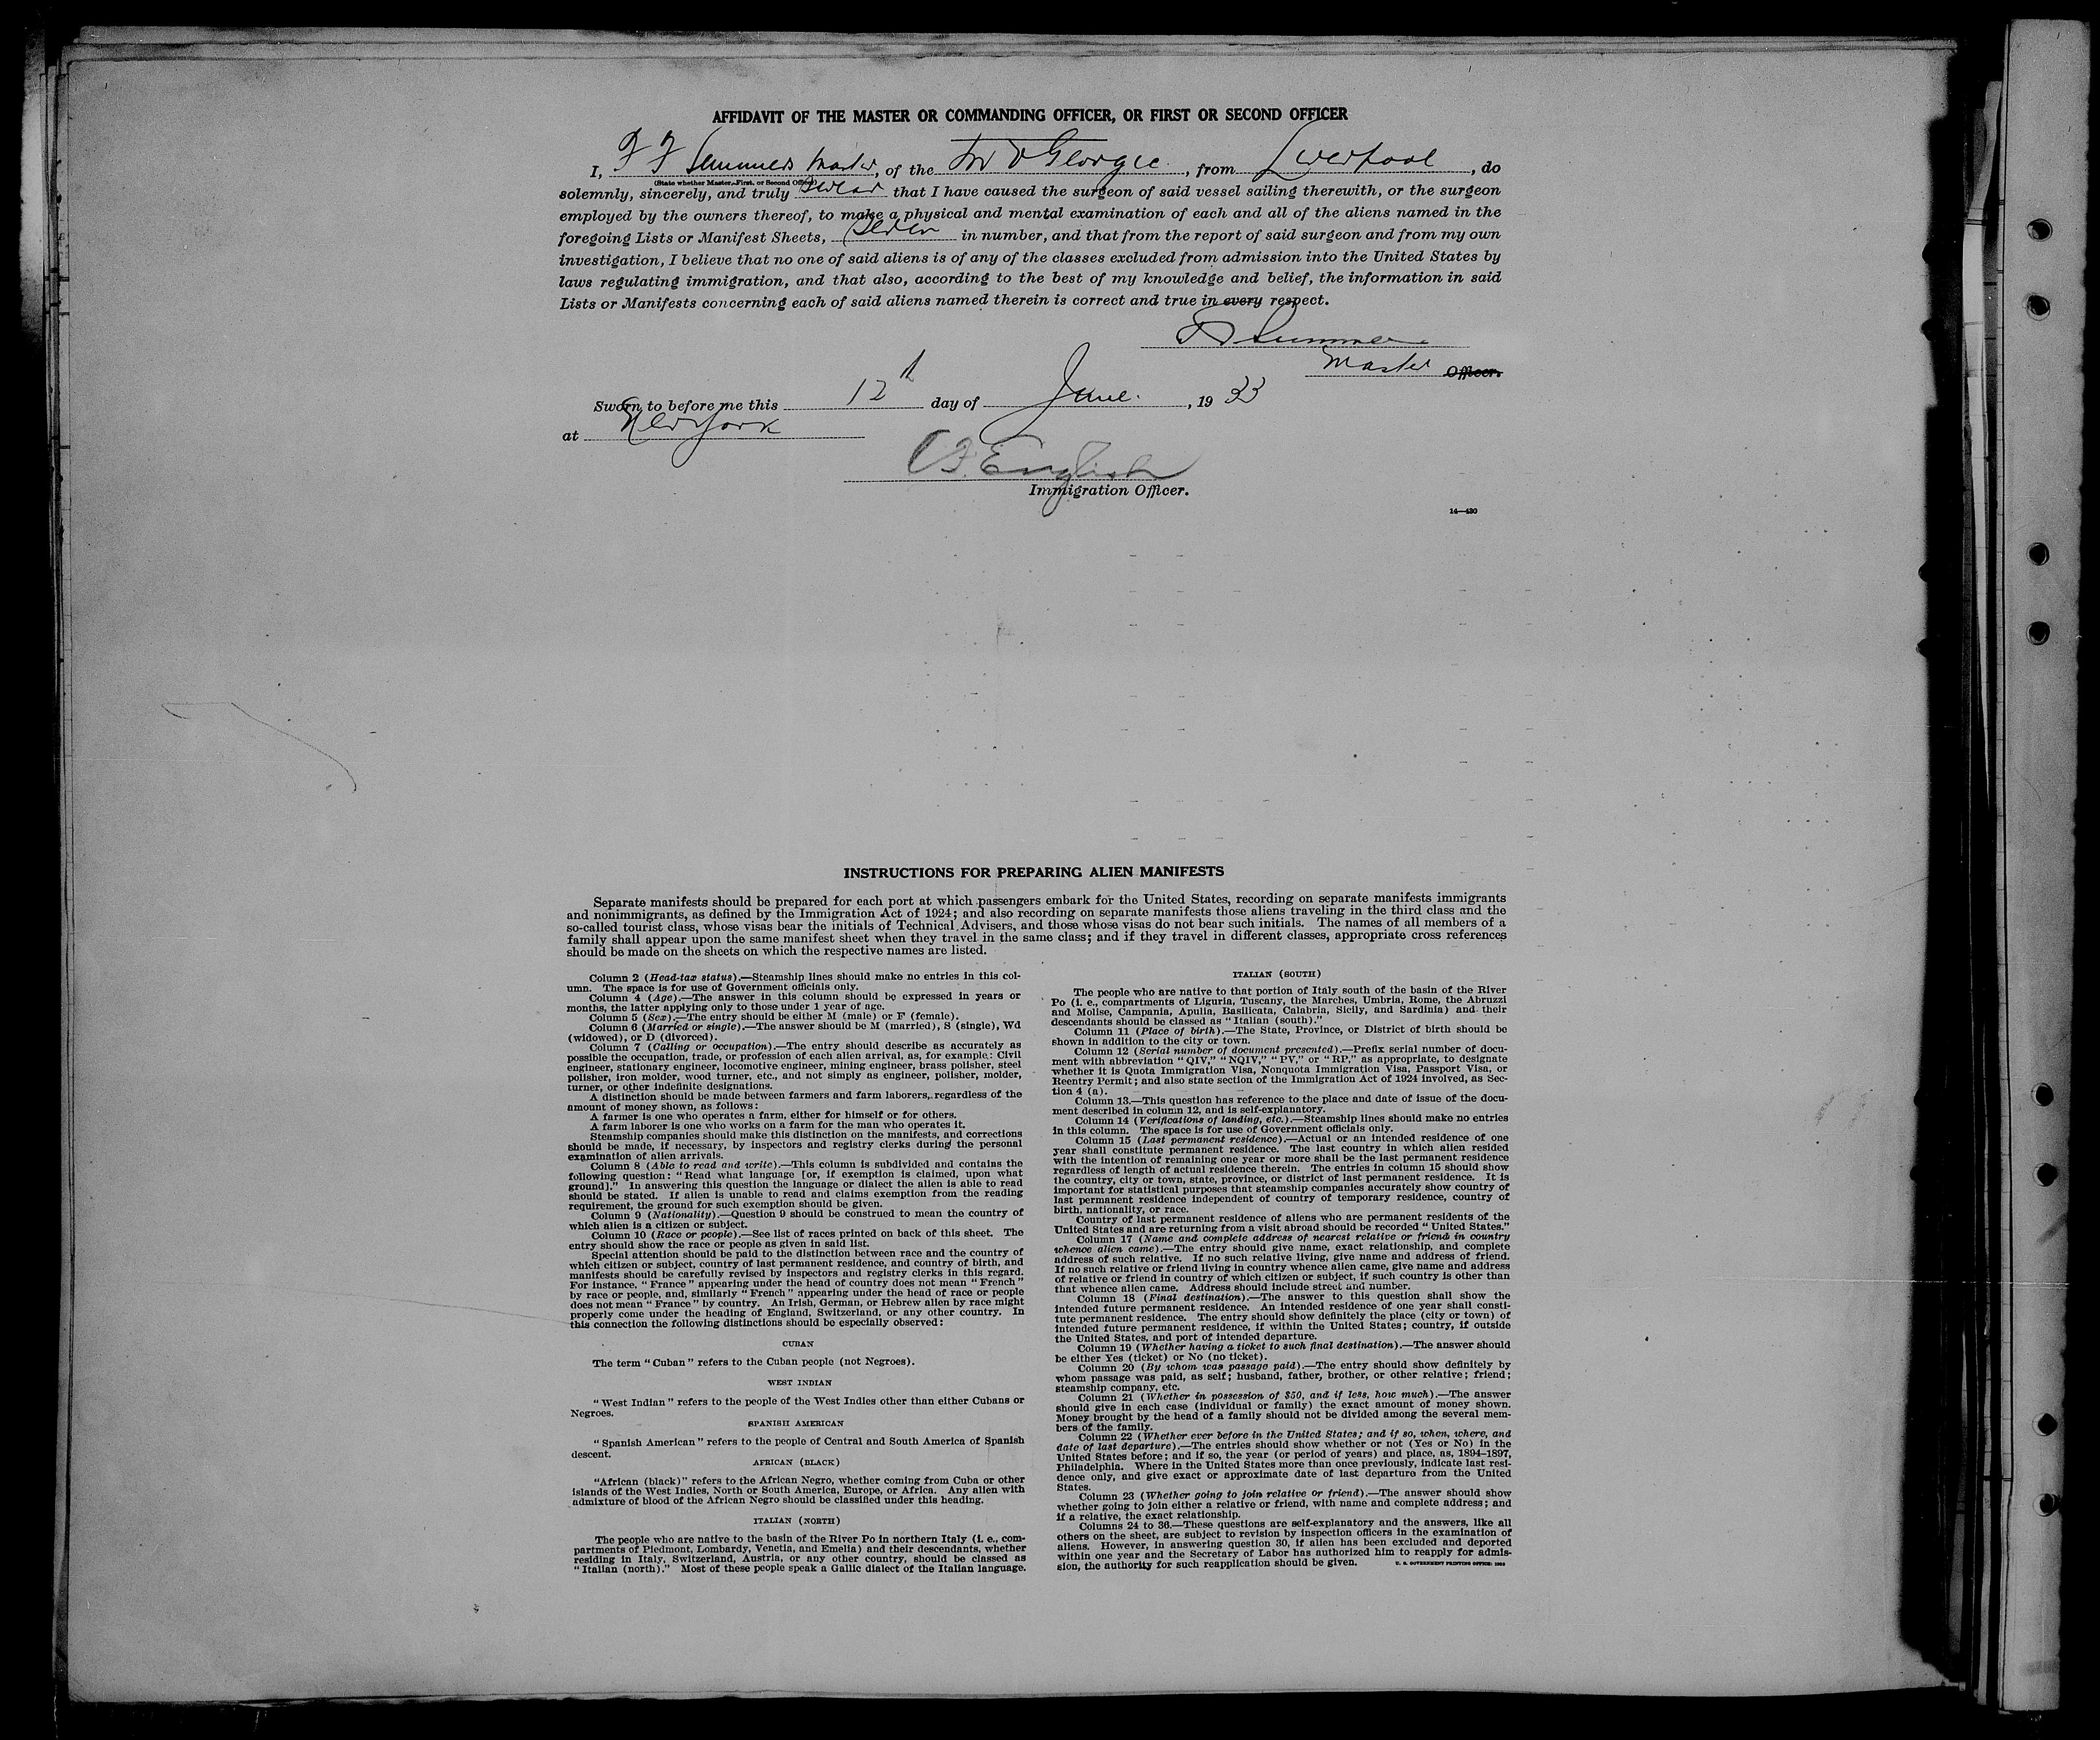 AFFIDAVIT OF THE MASTER OR COMMANDING OFFICER, OR FIRST OR SECOND OFFICER
I, F F Summers Master, of the M V Georgic, from Liverpool, do
(State whether Master, First, or Second Officer)
solemnly, sincerely, and truly swear that I have caused the surgeon of said vessel sailing therewith, or the surgeon
employed by the owners thereof, to make a physical and mental examination of each and all of the aliens named in the
foregoing Lists or Manifest Sheets, seven in number, and that from the report of said surgeon and from my own
investigation, I believe that no one of said aliens is of any of the classes excluded from admission into the United States by
laws regulating immigration, and that also, according to the best of my knowledge and belief, the information in said
Lists or Manifests concerning each of said aliens named therein is correct and true in every respect.
F F Summers
Master Officer.
Sworn to before me this 12th day of June, 1933
at New York
C F English
Immigration Officer.
14—430
INSTRUCTIONS FOR PREPARING ALIEN MANIFESTS
Separate manifests should be prepared for each port at which passengers embark for the United States, recording on separate manifests immigrants
and nonimmigrants, as defined by the Immigration Act of 1924; and also recording on separate manifests those aliens traveling in the third class and the
so-called tourist class, whose visas bear the initials of Technical Advisers, and those whose visas do not bear such initials. The names of all members of a
family shall appear upon the same manifest sheet when they travel in the same class; and if they travel in different classes, appropriate cross references
should be made on the sheets on which the respective names are listed.
Column 2 (Head-tax status).—Steamship lines should make no entries in this col-
umn. The space is for use of Government officials only.
Column 4 (Age).—The answer in this column should be expressed in years or
months, the latter applying only to those under 1 year of age.
Column 5 (Sex).—The entry should be either M (male) or F (female).
Column 6 (Married or single).—The answer should be M (married), S (single), Wd
(widowed), or D (divorced).
Column 7 (Calling or occupation).—The entry should describe as accurately as
possible the occupation, trade, or profession of each alien arrival, as, for example: Civil
engineer, stationary engineer, locomotive engineer, mining engineer, brass polisher, steel
polisher, iron molder, wood turner, etc., and not simply as engineer, polisher, molder,
turner, or other indefinite designations.
A distinction should be made between farmers and farm laborers, regardless of the
amount of money shown, as follows:
A farmer is one who operates a farm, either for himself or for others.
A farm laborer is one who works on a farm for the man who operates it.
Steamship companies should make this distinction on the manifests, and corrections
should be made, if necessary, by inspectors and registry clerks during the personal
examination of alien arrivals.
Column 8 (Able to read and write).—This column is subdivided and contains the
following question: "Read what language [or, if exemption is claimed, upon what
ground]." In answering this question the language or dialect the alien is able to read
should be stated. If alien is unable to read and claims exemption from the reading
requirement, the ground for such exemption should be given.
Column 9 (Nationality).—Question 9 should be construed to mean the country of
which alien is a citizen or subject.
Column 10 (Race or people).—See list of races printed on back of this sheet. The
entry should show the race or people as given in said list.
Special attention should be paid to the distinction between race and the country of
which citizen or subject, country of last permanent residence, and country of birth, and
manifests should be carefully revised by inspectors and registry clerks in this regard.
For instance, "France" appearing under the head of country does not mean "French"
by race or people, and, similarly "French" appearing under the head of race or people
does not mean "France" by country. An Irish, German, or Hebrew alien by race might
properly come under the heading of England, Switzerland, or any other country. In
this connection the following distinctions should be especially observed:
CUBAN
The term "Cuban" refers to the Cuban people (not Negroes).
WEST INDIAN
"West Indian" refers to the people of the West Indies other than either Cubans or
Negroes.
SPANISH AMERICAN
"Spanish American" refers to the people of Central and South America of Spanish
descent.
AFRICAN (BLACK)
"African (black)" refers to the African Negro, whether coming from Cuba or other
islands of the West Indies, North or South America, Europe, or Africa. Any alien with
admixture of blood of the African Negro should be classified under this heading.
ITALIAN (NORTH)
The people who are native to the basin of the River Po in northern Italy (i. e., com-
partments of Piedmont, Lombardy, Venetia, and Emelia) and their descendants, whether
residing in Italy, Switzerland, Austria, or any other country, should be classed as
"Italian (north)." Most of these people speak a Gallic dialect of the Italian language.
ITALIAN (SOUTH)
The people who are native to that portion of Italy south of the basin of the River
Po (i. e., compartments of Liguria, Tuscany, the Marches, Umbria, Rome, the Abruzzi
and Molise, Campania, Apulia, Basilicata, Calabria, Sicily, and Sardinia) and their
descendants should be classed as "Italian (south)."
Column 11 (Place of birth).—The State, Province, or District of birth should be
shown in addition to the city or town.
Column 12 (Serial number of document presented).—Prefix serial number of docu-
ment with abbreviation "QIV," "NQIV," "PV," or "RP," as appropriate, to designate
whether it is Quota Immigration Visa, Nonquota Immigration Visa, Passport Visa, or
Reentry Permit; and also state section of the Immigration Act of 1924 involved, as Sec-
tion 4 (a).
Column 13.—This question has reference to the place and date of issue of the docu-
ment described in column 12, and is self-explanatory.
Column 14 (Verifications of landing, etc.).—Steamship lines should make no entries
in this column. The space is for use of Government officials only.
Column 15 (Last permanent residence).—Actual or an intended residence of one
year shall constitute permanent residence. The last country in which alien resided
with the intention of remaining one year or more shall be the last permanent residence
regardless of length of actual residence therein. The entries in column 15 should show
the country, city or town, state, province, or district of last permanent residence. It is
important for statistical purposes that steamship companies accurately show country of
last permanent residence independent of country of temporary residence, country of
birth, nationality, or race.
Country of last permanent residence of aliens who are permanent residents of the
United States and are returning from a visit abroad should be recorded "United States."
Column 17 (Name and complete address of nearest relative or friend in country
whence alien came).—The entry should give name, exact relationship, and complete
address of such relative. If no such relative living, give name and address of friend.
If no such relative or friend living in country whence alien came, give name and address
of relative or friend in country of which citizen or subject, if such country is other than
that whence alien came. Address should include street and number.
Column 18 (Final destination).—The answer to this question shall show the
intended future permanent residence. An intended residence of one year shall consti-
tute permanent residence. The entry should show definitely the place (city or town) of
intended future permanent residence, if within the United States; country, if outside
the United States, and port of intended departure.
Column 19 (Whether having a ticket to such final destination).—The answer should
be either Yes (ticket) or No (no ticket).
Column 20 (By whom was passage paid).—The entry should show definitely by
whom passage was paid, as self; husband, father, brother, or other relative; friend;
steamship company, etc.
Column 21 (Whether in possession of $50, and if less, how much).—The answer
should give in each case (individual or family) the exact amount of money shown.
Money brought by the head of a family should not be divided among the several mem-
bers of the family.
Column 22 (Whether ever before in the United States; and if so, when, where, and
date of last departure).—The entries should show whether or not (Yes or No) in the
United States before; and if so, the year (or period of years) and place, as, 1894–1897,
Philadelphia. Where in the United States more than once previously, indicate last resi-
dence only, and give exact or approximate date of last departure from the United
States.
Column 23 (Whether going to join relative or friend).—The answer should show
whether going to join either a relative or friend, with name and complete address; and
if a relative, the exact relationship.
Columns 24 to 36.—These questions are self-explanatory and the answers, like all
others on the sheet, are subject to revision by inspection officers in the examination of
aliens. However, in answering question 30, if alien has been excluded and deported
within one year and the Secretary of Labor has authorized him to reapply for admis-
sion, the authority for such reapplication should be given.
U. S. GOVERNMENT PRINTING OFFICE: